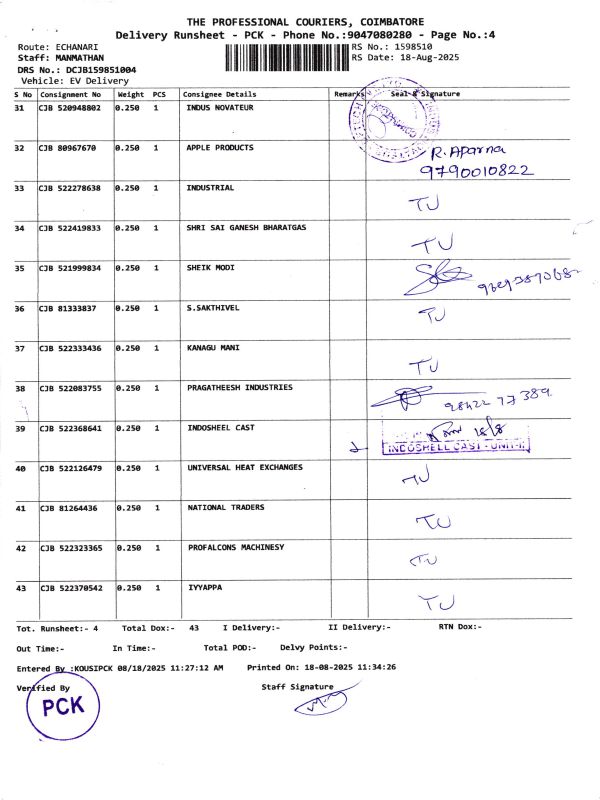 THE PROFESSIONAL COURIERS, COIMBATORE
Delivery Runsheet - PCK - Phone No.:9047080280 - Page No.:4
Route: ECHANARI RS No.: 1598510
Staff: MANMATHAN RS Date: 18-Aug-2025
DRS No.: DCJB159851004
Vehicle: EV Delivery
S No Consignment No Weight PCS Consignee Details Remarks Seal & Signature
31 CJB 520948802 0.250 1 INDUS NOVATEUR
32 CJB 80967670 0.250 1 APPLE PRODUCTS R. Aparna
9790010822
33 CJB 522278638 0.250 1 INDUSTRIAL TU
34 CJB 522419833 0.250 1 SHRI SAI GANESH BHARATGAS TU
35 CJB 521999834 0.250 1 SHEIK MODI
36 CJB 81333837 0.250 1 S.SAKTHIVEL TU
37 CJB 522333436 0.250 1 KANAGU MANI TU
38 CJB 522083755 0.250 1 PRAGATHEESH INDUSTRIES 98422 77389
39 CJB 522368641 0.250 1 INDOSHEEL CAST 18/8
INDOSHELL CAST - UNIT-II
40 CJB 522126479 0.250 1 UNIVERSAL HEAT EXCHANGES TU
41 CJB 81264436 0.250 1 NATIONAL TRADERS TU
42 CJB 522323365 0.250 1 PROFALCONS MACHINESY TU
43 CJB 522370542 0.250 1 IYYAPPA TU
Tot. Runsheet:- 4 Total Dox:- 43 I Delivery:- II Delivery:- RTN Dox:-
Out Time:- In Time:- Total POD:- Delvy Points:-
Entered By :KOUSIPCK 08/18/2025 11:27:12 AM Printed On: 18-08-2025 11:34:26
Verified By Staff Signature
PCK